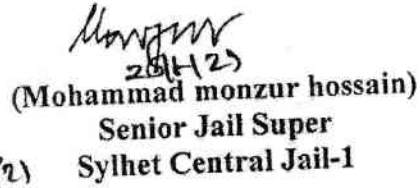 (Mohammad monzur hossain)
Senior Jail Super
Sylhet Central Jail-1